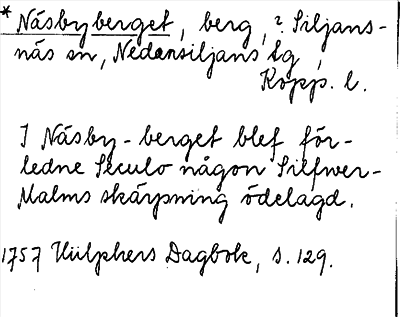 * Näsbyberget, berg, ? Siljans-
näs sn, Nedansiljans tg,
Kopp. l.
I Näsby-berget blef för-
ledne Seculo någon Silfwer-
Malms skärpning ödelagd.
1757 Hülphers Dagbok, s. 129.